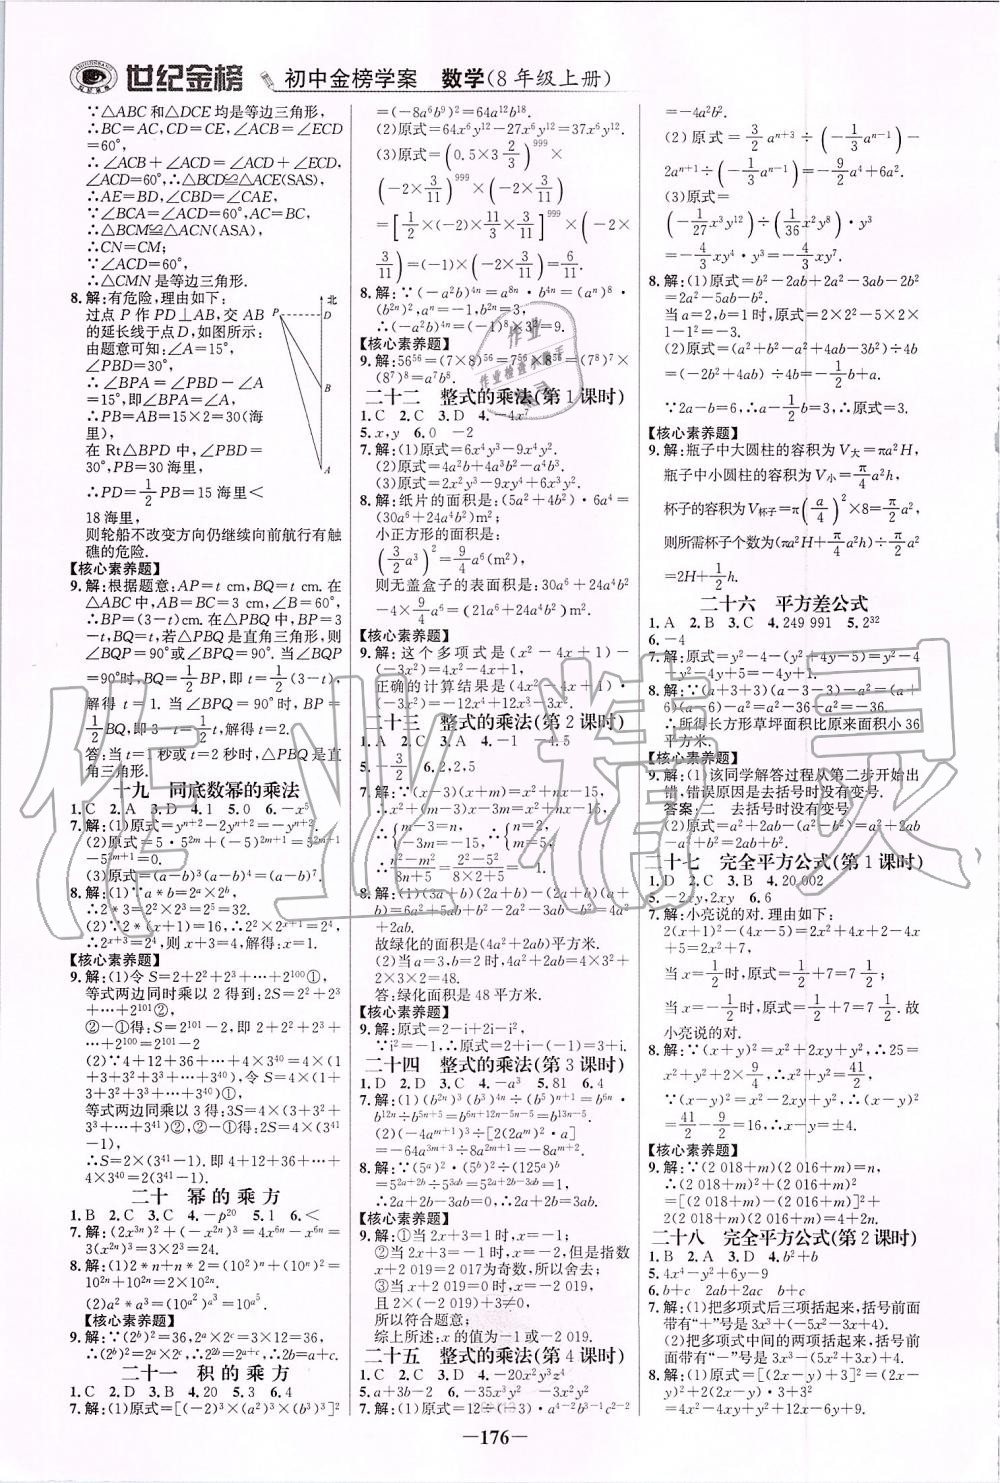 世纪金榜 初中金榜学案 数学(8年级上册)
∵△ABC和△DCE均是等边三角形,
∴BC=AC,CD=CE,∠ACB=∠ECD
=60°,
∴∠ACB+∠ACD=∠ACD+∠ECD,
∠ACD=60°,∴△BCD≌△ACE(SAS),
∴AE=BD,∠CBD=∠CAE,
∵∠BCA=∠ACD=60°,AC=BC,
∴△BCM≌△ACN(ASA),
∴CN=CM;
∵∠ACD=60°,
∴△CMN是等边三角形.
8.解:有危险,理由如下:
过点P作PD⊥AB,交AB
的延长线于点D,如图所示:
由题意可知:∠A=15°,
∠PBD=30°,
∴∠BPA=∠PBD-∠A
=15°,即∠BPA=∠A,
∴PB=AB=15×2=30(海
里),
在Rt△BPD中,∠PBD=
30°,PB=30海里,
∴PD=1/2PB=15海里<
18海里,
则轮船不改变方向仍继续向前航行有触
礁的危险.
北
P
D
B
A
【核心素养题】
9.解:根据题意:AP=t cm,BQ=t cm.在
△ABC中,AB=BC=3 cm,∠B=60°,
∴BP=(3-t)cm.在△PBQ中,BP=3
-t,BQ=t,若△PBQ是直角三角形,则
∠BQP=90°或∠BPQ=90°.当∠BQP
=90°时,BQ=1/2BP,即t=1/2(3-t),
解得t=1.当∠BPQ=90°时,BP=
1/2BQ,即3-t=1/2t,解得t=2.
答:当t=1秒或t=2秒时,△PBQ是直
角三角形.
十九 同底数幂的乘法
1.C 2.A 3.D 4.1 5.0 6.-x⁵
7.解:(1)原式=yⁿ⁺²-2yⁿ⁺²=-yⁿ⁺².
(2)原式=5·5²ᵐ+(-5)²ᵐ⁺¹=5²ᵐ⁺¹
-5²ᵐ⁺¹=0.
(3)原式=(a-b)³(a-b)⁴=(a-b)⁷.
8.解:(1)∵a*b=2ᵃ×2ᵇ,
∴2*3=2²×2³=2⁵=32.
(2)∵2*(x+1)=16,∴2²×2ˣ⁺¹=2⁴,
∴2ˣ⁺³=2⁴,则x+3=4,解得:x=1.
【核心素养题】
9.解:(1)令S=2+2²+2³+…+2¹⁰⁰①,
等式两边同时乘以2得到:2S=2²+2³
+…+2¹⁰¹②,
②-①得:S=2¹⁰¹-2,即2+2²+2³+
…+2¹⁰⁰=2¹⁰¹-2
(2)∵4+12+36+…+4×3⁴⁰=4×(1
+3+3²+3³+…+3⁴⁰),令S=4×(1+
3+3²+3³+…+3⁴⁰)①,
等式两边同乘以3得:3S=4×(3+3²+
3³+…+3⁴¹)②,②-①得:2S=4×(3⁴¹
-1),
∴S=2×(3⁴¹-1),即4+12+36+…+
4×3⁴⁰=2×(3⁴¹-1).
二十 幂的乘方
1.B 2.C 3.C 4.-p²⁰ 5.1 6.<
7.解:(2x³ⁿ)²+(-x²ⁿ)³=4x⁶ⁿ-x⁶ⁿ=
3(x³ⁿ)²=27.
8.解:(1)*n+n*2=(10²)ⁿ+(10ⁿ)²=
10²ⁿ+10²ⁿ=2×10²ⁿ.
【核心素养题】
9.解:∵(2ᵇ)²=36,2ᵃ×2ᶜ=3×12=36,
∴2²ᵇ=2ᵃ×2ᶜ,∴2b=a+c.
二十一 积的乘方
1.C 2.D 3.B 4.20 5.3 6.4
7.解:(1)原式=[(-2)³×(a²)³×(b³)³]²
=(-8a⁶b⁹)²=64a¹²b¹⁸.
(2)原式=64x⁶y¹²-27x⁶y¹²=37x⁶y¹².
(3)原式=(0.5×3 2/3)⁹⁹⁹×
(-2×3/11)⁹⁹⁹×(-2×3/11)
=[1/2×(-2)×11/3×3/11]⁹⁹⁹×(-2×
3/11)=(-1)×(-6/11)=6/11.
8.解:∵(-a²b)⁴ⁿ=a⁸ⁿ·b⁴ⁿ=(aⁿ)⁸·
(b²ⁿ)²,aⁿ=-1,b²ⁿ=3,
∴(-a²b)⁴ⁿ=(-1)⁸×3²=9.
【核心素养题】
9.解:56⁵⁶=(7×8)⁵⁶=7⁵⁶×8⁵⁶=(7⁸)⁷×
(8⁷)⁸=a⁷b⁸.
二十二 整式的乘法(第1课时)
1.C 2.C 3.D 4.-4x⁷
5.x,y 6.0 -2
7.解:(1)原式=6x⁴y³-9x³y⁴.
(2)原式=4a²b+4a³b²-a⁴b³.
(3)原式=2x²y³-4xy⁴+6x³y².
8.解:纸片的面积是:(5a²+4b²)·6a⁴=
(30a⁶+24a⁴b²)m²;
小正方形的面积是:
(3/2a³)²=9/4a⁶(m²),
则无盖盒子的表面积是:30a⁶+24a⁴b²
-4×9/4a⁶=(21a⁶+24a⁴b²)m².
【核心素养题】
9.解:这个多项式是(x²-4x+1)-
(-3x²)=4x²-4x+1,
正确的计算结果是(4x²-4x+1)·
(-3x²)=-12x⁴+12x³-3x².
二十三 整式的乘法(第2课时)
1.A 2.C 3.A 4.-1 -4.5
5.-3/2 6.2,2,5
7.解:∵(x-3)(x+m)=x²+nx-15,
∴x²+(m-3)x-3m=x²+nx-15,
∴{m-3=n, -3m=-15, ∴{n=2, m=5,
8.解:(1)(3a+b)(2a+b)-(a+b)(2a
故绿化的面积是(4a²+2ab)平方米.
(2)当a=3,b=2时,4a²+2ab=4×3²+
2×3×2=48.
答:绿化面积是48平方米.
【核心素养题】
9.解:原式=2-i+2i-i²,
∵i²=-1,∴原式=2+i-(-1)=3+i.
二十四 整式的乘法(第3课时)
1.D 2.D 3.C 4.-a³ 5.81 6.4
7.解:(1)(b²ⁿ)³(b³)⁴ⁿ÷(b⁵)ⁿ⁺¹=b⁶ⁿ·
b¹²ⁿ÷b⁵ⁿ⁺⁵=b⁶ⁿ⁺¹²ⁿ⁻⁵ⁿ⁻⁵=b¹³ⁿ⁻⁵.
(2)(-4aᵐ⁺¹)³÷[2(2aᵐ)²·a]
=-64a³ᵐ⁺³÷8a²ᵐ⁺¹=-8aᵐ⁺².
8.解:∵(5ᵃ)²·(5ᵇ)²÷(125ᵃ)ᵇ
=5²ᵃ⁺²ᵇ÷5³ᵃᵇ=5²ᵃ⁺²ᵇ⁻³ᵃᵇ=1,
∴2a+2b-3ab=0,∴2a+2b=3ab.
【核心素养题】
9.解:①当2x+3=1时,x=-1;
②当2x+3=-1时,x=-2,但是指数
x+2 019=2 017为奇数,所以舍去;
③当x+2 019=0时,x=-2 019,
且2×(-2 019)+3≠0,
所以符合题意;
综上所述:x的值为-1或-2 019.
二十五 整式的乘法(第4课时)
1.C 2.D 3.C 4.20x²yz⁴
5.a+3b-2 6.-35x³y² -3x²y²
=-4a²b².
(2)原式=3/2aⁿ⁺³÷(-1/3aⁿ⁻¹)-
2aⁿ⁺¹÷(-1/3aⁿ⁻¹)=-9/2a⁴+6a².
(3)原式=
(-1/27x³y¹²)÷(1/36x²y⁸)·y³
=-4/3xy⁴·y³=-4/3xy⁷.
8.解:(1)原式=b²-2ab+2a²-3ab-2b²=
2a²-5ab-b²,
当a=2,b=1时,原式=2×2²-5×2×
1-1²=-3.
(2)原式=(a²+b²-a²+4ab-3b²)÷4b
∵2a-b=6,∴a-1/2b=3,∴原式=3.
【核心素养题】
9.解:瓶子中大圆柱的容积为V大=πa²H,
瓶子中小圆柱的容积为V小=π/4a²h,
杯子的容积为V杯子=π(a/4)²×8=π/2a²,
则所需杯子个数为(πa²H+π/4a²h)÷π/2a²
=2H+1/2h.
二十六 平方差公式
1.A 2.B 3.C 4.249 991 5.2³²
6.-4
7.解:原式=y²-4-(y²+4y-5)=y²-4
-y²-4y+5=-4y+1.
8.解:∵(a+3+3)(a-3-3)-a²=(a+
6)(a-6)-a²=a²-36-a²=-36,
∴所得长方形草坪面积比原来面积小36
平方米.
【核心素养题】
9.解:(1)该同学解答过程从第二步开始出
错,错误原因是去括号时没有变号.
答案:二 去括号时没有变号
(2)原式=a²+2ab-(a²-b²)=a²+2ab
-a²+b²=2ab+b².
二十七 完全平方公式(第1课时)
1.D 2.C 3.B 4.20 002
5.-2xy,2xy 6.6
7.解:小亮说的对.理由如下:
2(x+1)²-(4x-5)=2x²+4x+2-4x
+5=2x²+7,
当x=1/2时,原式=1/2+7=7 1/2,
当x=-1/2时,原式=1/2+7=7 1/2.故
小亮说的对.
8.解:∵(x+y)²=x²+y²+2xy,∴25=
x²+y²+9/2,∴x²+y²=41/2,
∵(x-y)²=x²+y²-2xy,∴(x-y)²=
41/2-9/2=16,∴x-y=±4.
【核心素养题】
9.解:∵(2 018+m)(2 016+m)=n,
∴(2 018+m)²+(2 016+m)²
=[(2 018+m)-(2 016+m)]²+
2(2 018+m)(2 016+m)=4+2n.
二十八 完全平方公式(第2课时)
1.B 2.A 3.D 4.b²+b
5.4x⁴-y²+6y-9
6.b+c 2ab+2ac b+c
7.解:(1)把多项式后三项括起来,括号前面
带有“+”号是3x³+(-5x²-3x+3)
(2)把多项式中间的两项括起来,括号前
面带有“-”号是3x³-(5x²+3x)+3.
8.解:(1)原式=[(2x-y)+3]²=(2x-y)²
=4x²-4xy+y²+12x-6y+9.
—176—
作业精灵